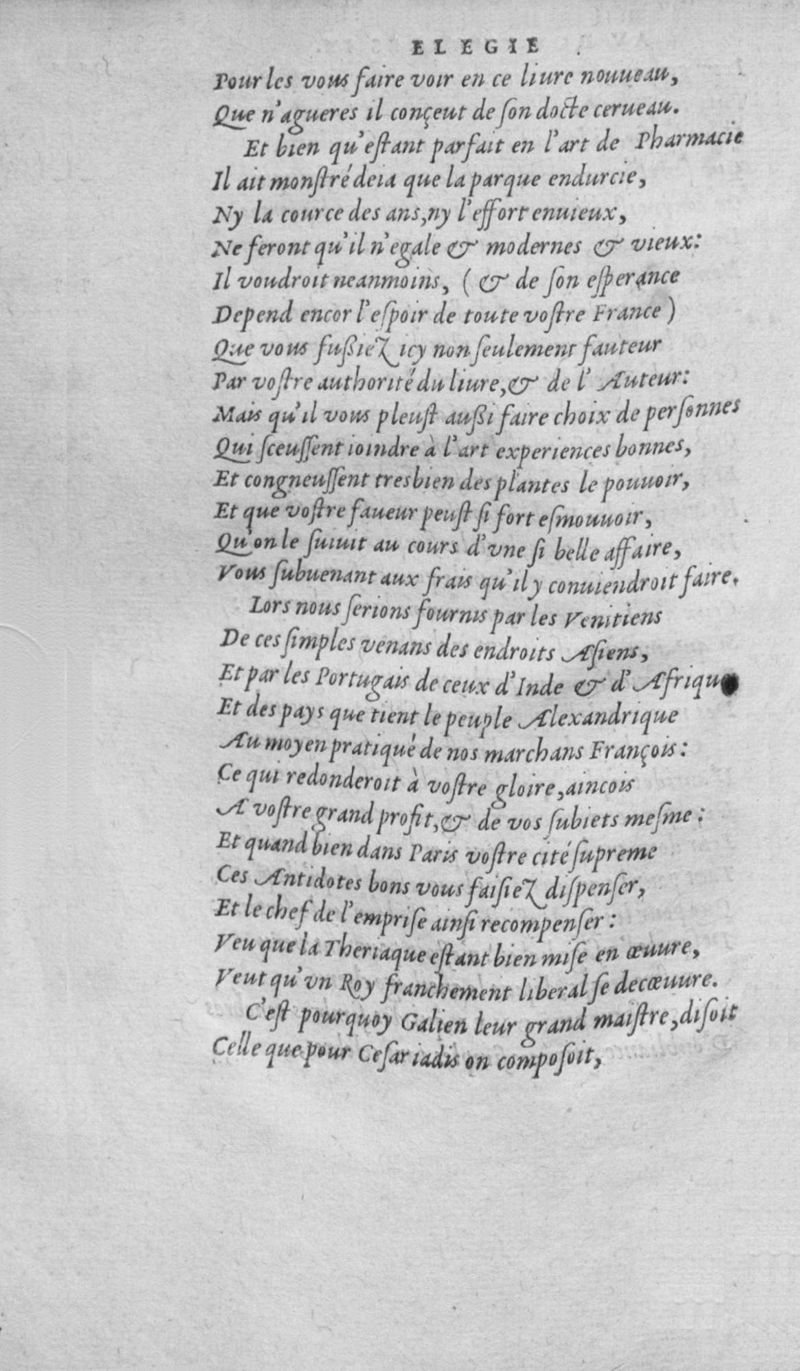 ELEGIE
Pour les vous faire voir en ce liure nouueau,
Que n'agueres il conçeut de son docte cerueau.
Et bien qu'estant parfait en l'art de Pharmacie
Il ait monstré deia que la parque endurcie,
Ny la cource des ans, ny l'effort enuieux,
Ne feront qu'il n'egale & modernes & vieux:
Il voudroit neanmoins, (& de son esperance
Depend encor l'espoir de toute vostre France)
Que vous fußiez icy non seulement fauteur
Par vostre authorité du liure, & de l'Auteur:
Mais qu'il vous pleust außi faire choix de personnes
Qui sceussent ioindre à l'art experiences bonnes,
Et congneussent tresbien des plantes le pouuoir,
Et que vostre faueur peust si fort esmouuoir,
Qu'on le suiuit au cours d'vne si belle affaire,
Vous subuenant aux frais qu'il y conuiendroit faire.
Lors nous serions fournis par les Venitiens
De ces simples venans des endroits Asiens,
Et par les Portugais de ceux d'Inde & d'Afrique
Et des pays que tient le peuple Alexandrique
Au moyen pratiqué de nos marchans François:
Ce qui redonderoit à vostre gloire, aincois
A vostre grand profit, & de vos subiets mesme:
Et quand bien dans Paris vostre cité supreme
Ces Antidotes bons vous faisiez dispenser,
Et le chef de l'emprise ainsi recompenser:
Veu que la Theriaque estant bien mise en œuure,
Veut qu'vn Roy franchement liberal se decœuure.
C'est pourquoy Galien leur grand maistre, disoit
Celle que pour Cesar iadis on composoit,